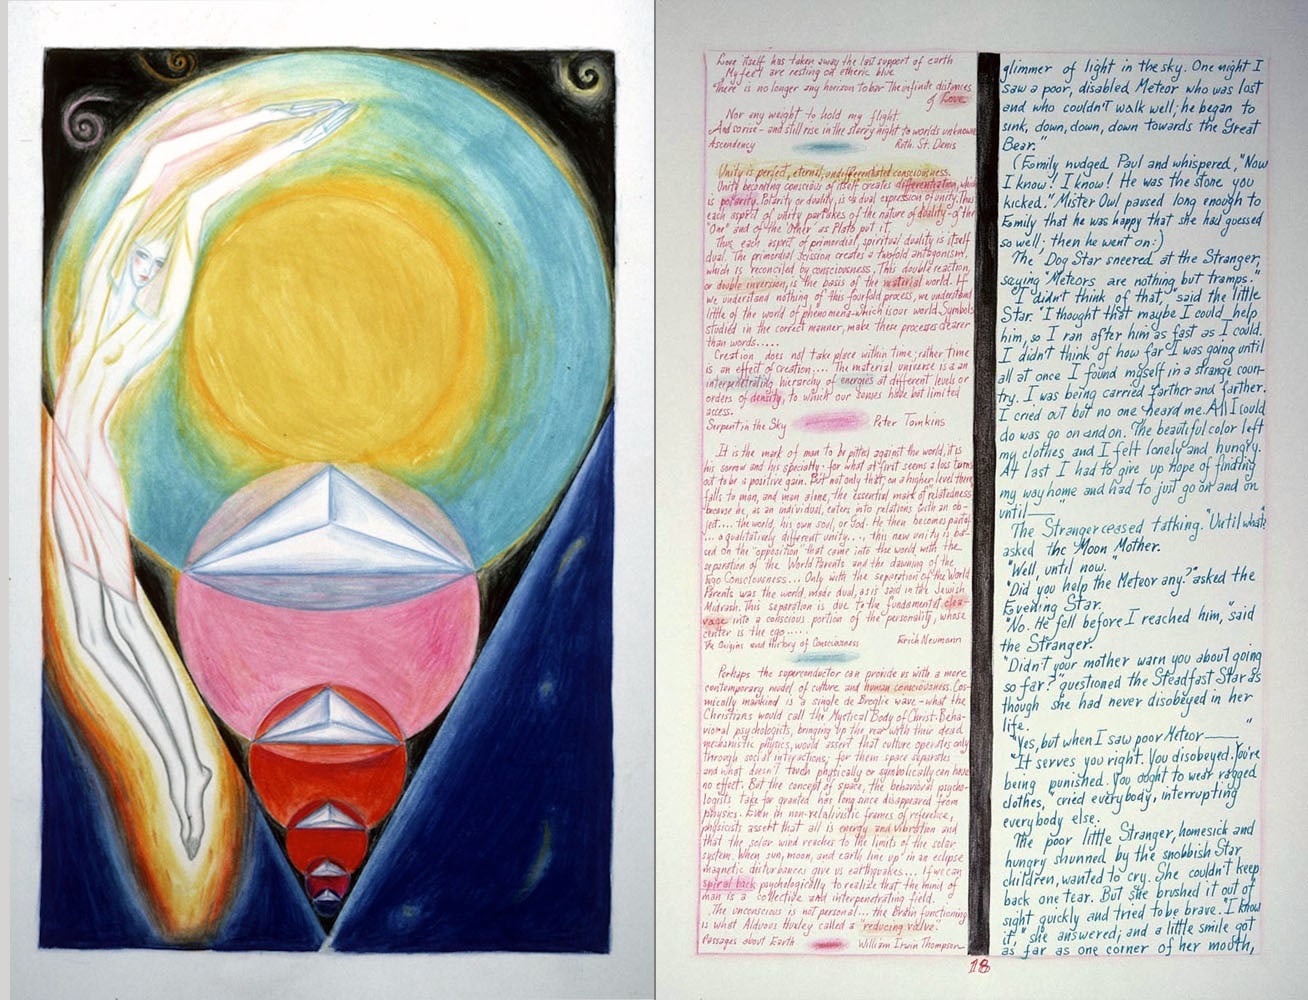 Love itself has taken away the last support of earth
My feet are resting on etheric blue.
There is no longer any horizon to bar The infinite distances
of Love
Nor any weight to hold my flight.
And so rise - and still rise in the starry night to worlds unknown
Ascendency Ruth. St. Denis
Unity is perfect, eternal, undifferentiated consciousness.
Unity becoming conscious of itself creates differentiation, which
is polarity. Polarity or duality, is a dual expression of unity. Thus
each aspect of unity partakes of the nature of duality - of the
"One" and of the "Other" as Plato put it.
Thus each aspect of primordial spiritual duality is itself
dual. The primordial scission creates a twofold antagonism,
which is reconciled by consciousness. This double reaction,
or double inversion, is the basis of the material world. If
we understand nothing of this fourfold process, we understand
little of the world of phenomena - which is our world. Symbols
studied in the correct manner, make these processes clearer
than words.....
Creation does not take place within time; rather time
is an effect of creation.... The material universe is a an
interpenetrating hierarchy of energies at different levels or
orders of density, to which our senses have but limited
access.
Serpent in the Sky Peter Tomkins
It is the mark of man to be pitted against the world, it is
his sorrow and his specialty; for what at first seems a loss turns
out to be a positive gain. But not only that; on a higher level there
falls to man, and man alone, the essential mark of "relatedness"
because he, as an individual, enters into relations with an ob-
ject.... the world, his own soul, or God. He then becomes part of
... a qualitatively different unity..., this new unity is ba-
sed on the "opposition" that came into the world with the
separation of the World Parents and the dawning of the
Ego Consciousness... Only with the separation of the World
Parents was the world made dual, as is said in the Jewish
Midrash. This separation is due to the fundamental clea-
vage into a conscious portion of the personality, whose
center is the ego.....
The Origins and History of Consciousness Erich Neumann
Perhaps the superconductor can provide us with a more
contemporary model of culture and human consciousness. Cos-
mically mankind is a single de Broglie wave - what the
Christians would call the Mystical Body of Christ. Beha-
vioral psychologists, bringing up the rear with their dead
mechanistic physics, would assert that culture operates only
through social interactions; for them space separates
and what doesn't touch physically or symbolically can have
no effect. But the concept of space, the behavioral psycho-
logists take for granted has long since disappeared from
physics. Even in non-relativistic frames of reference,
physicists assert that all is energy and vibration and
that the solar wind reaches to the limits of the solar
system. When sun, moon, and earth line up in an eclipse
magnetic disturbances give us earthquakes... If we can
spiral back psychologically to realize that the mind of
man is a collective and interpenetrating field.
The unconscious is not personal... the Brain functioning
is what Aldous Huxley called a "reducing valve."
Passages about Earth William Irwin Thompson
glimmer of light in the sky. One night I
saw a poor, disabled Meteor who was lost
and who couldn't walk well; he began to
sink, down, down, down towards the Great
Bear."
(Emily nudged Paul and whispered, "Now
I know! I know! He was the stone you
kicked." Mister Owl paused long enough to
Emily that he was happy that she had guessed
so well; then he went on:)
The Dog Star sneered at the Stranger,
saying "Meteors are nothing but tramps."
"I didn't think of that," said the little
Star. "I thought that maybe I could help
him, so I ran after him as fast as I could.
I didn't think of how far I was going until
all at once I found myself in a strange coun-
try. I was being carried farther and farther.
I cried out but no one heard me. All I could
do was go on and on. The beautiful color left
my clothes and I felt lonely and hungry.
At last I had to give up hope of finding
my way home and had to just go on and on
until ——"
The Stranger ceased talking. "Until what?"
asked the Moon Mother.
"Well, until now."
"Did you help the Meteor any?" asked the
Evening Star.
"No. He fell before I reached him," said
the Stranger.
"Didn't your mother warn you about going
so far?" questioned the Steadfast Star as
though she had never disobeyed in her
life.
"Yes, but when I saw poor Meteor ——"
"It serves you right. You disobeyed. You're
being punished. You ought to wear ragged
clothes," cried everybody, interrupting
everybody else.
The poor little Stranger, homesick and
hungry shunned by the snobbish Star
children, wanted to cry. She couldn't keep
back one tear. But she brushed it out of
sight quickly and tried to be brave. "I know
it," she answered; and a little smile got
as far as one corner of her mouth,
18